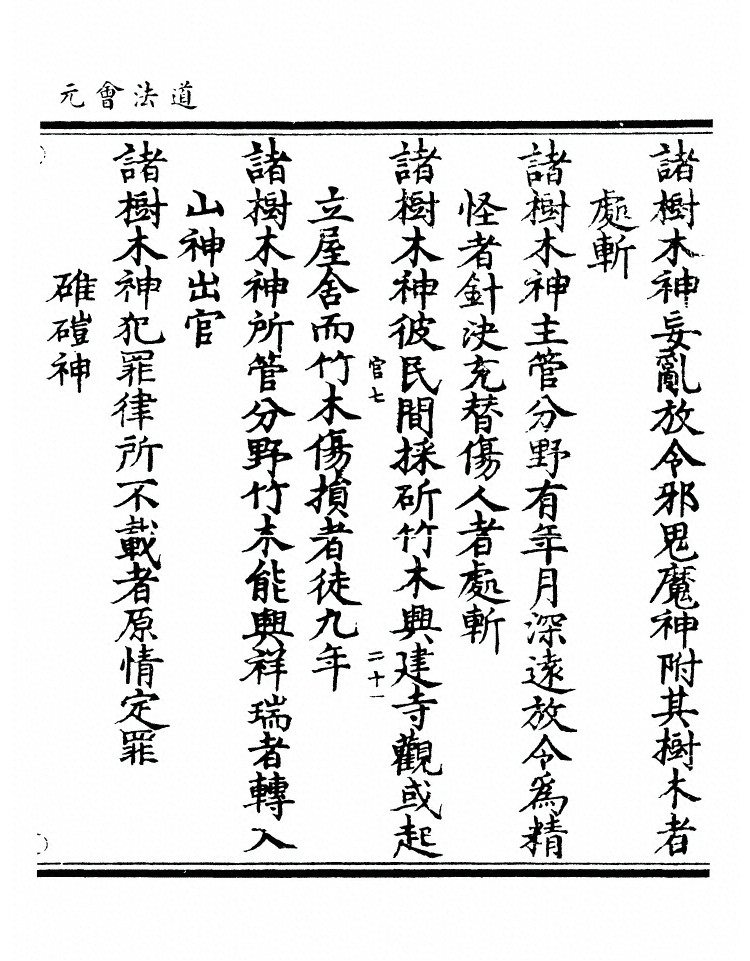 道法會元
諸樹木神妄亂放令邪鬼魔神附其樹木者
處斬
諸樹木神主管分野有年月深遠放令為精
怪者針決充替傷人者處斬
諸樹木神彼民間採斫竹木興建寺觀或起
官七
二十一
立屋舍而竹木傷損者徒九年
諸樹木神所管分野竹木能興祥瑞者轉入
山神出官
諸樹木神犯罪律所不載者原情定罪
碓磑神